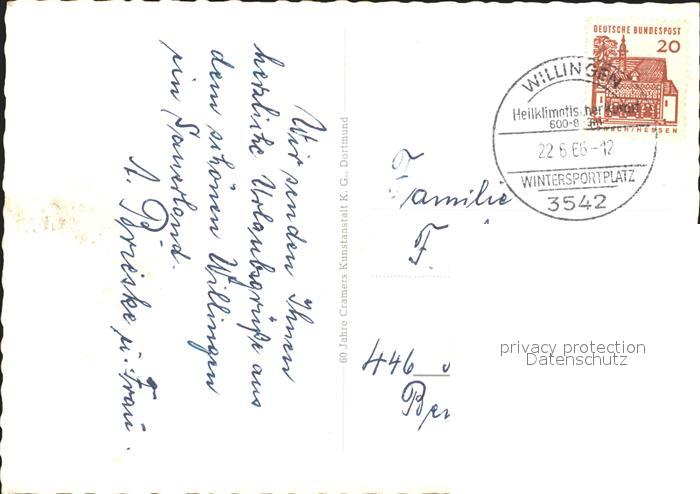 Wir senden Ihnen
herzliche Urlaubsgrüße aus
dem schönen Willingen
im Sauerland.
A. Brieske u. Frau.
60 Jahre Cramers Kunstanstalt K. G., Dortmund
DEUTSCHE BUNDESPOST
20
LORSCH/HESSEN
WILLINGEN
Heilklimatischer Kurort
600-8
22.6.66-12
WINTERSPORTPLATZ
3542
Familie
F.
446
privacy protection
Datenschutz